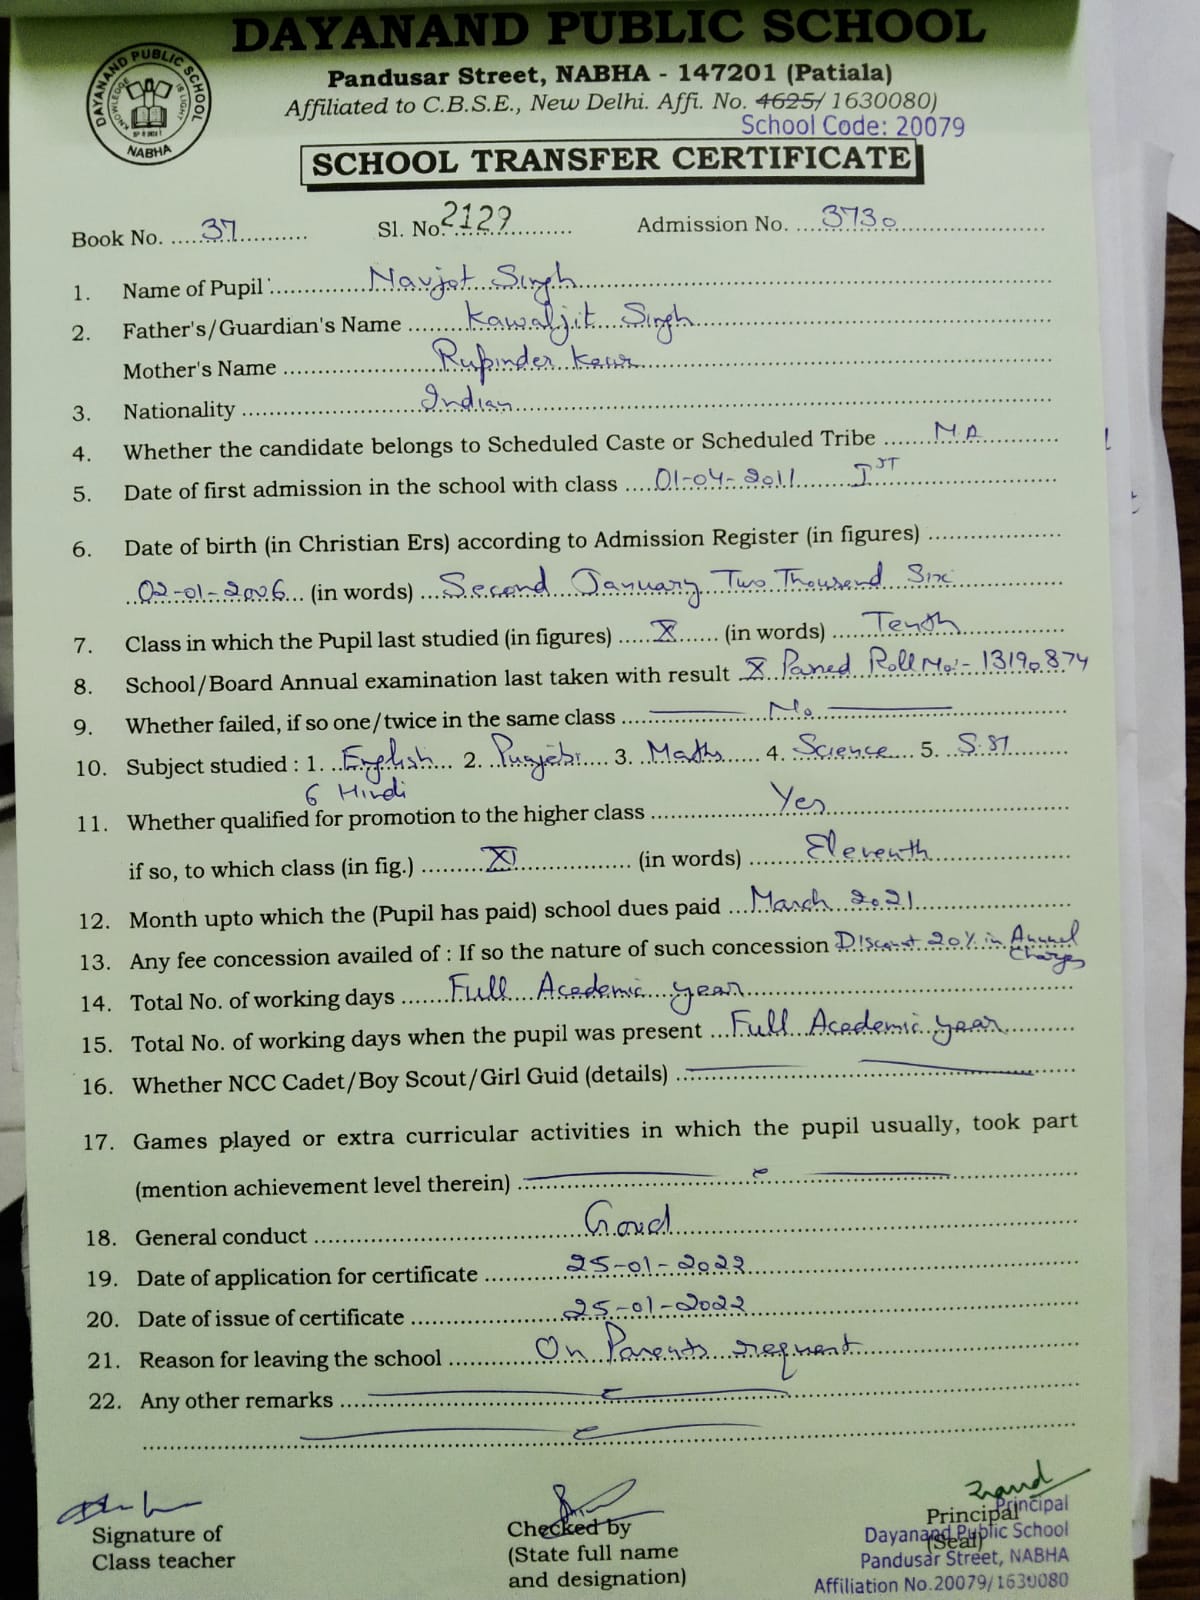 DAYANAND PUBLIC SCHOOL
Pandusar Street, NABHA - 147201 (Patiala)
Affiliated to C.B.S.E., New Delhi. Affi. No. 4625/ 1630080)
School Code: 20079
DAYANAND PUBLIC SCHOOL
KNOWLEDGE IS LIGHT
NABHA
SCHOOL TRANSFER CERTIFICATE
Book No. 37 Sl. No. 2129 Admission No. 3730
1. Name of Pupil Navjot Singh
2. Father's/Guardian's Name Kawaljit Singh
Mother's Name Rupinder Kaur
3. Nationality Indian
4. Whether the candidate belongs to Scheduled Caste or Scheduled Tribe N.A
5. Date of first admission in the school with class 01-04-2011 IST
6. Date of birth (in Christian Ers) according to Admission Register (in figures)
02-01-2006 (in words) Second January Two Thousand Six
7. Class in which the Pupil last studied (in figures) X (in words) Tenth
8. School/Board Annual examination last taken with result X Passed Roll No:- 13190874
9. Whether failed, if so one/twice in the same class No
10. Subject studied : 1. English 2. Punjabi 3. Maths 4. Science 5. S.St
6 Hindi
11. Whether qualified for promotion to the higher class Yes
if so, to which class (in fig.) XI (in words) Eleventh
12. Month upto which the (Pupil has paid) school dues paid March 2021
13. Any fee concession availed of : If so the nature of such concession Discount 20% in Annual Charges
14. Total No. of working days Full Academic year
15. Total No. of working days when the pupil was present Full Academic year
16. Whether NCC Cadet/Boy Scout/Girl Guid (details)
17. Games played or extra curricular activities in which the pupil usually, took part
(mention achievement level therein)
18. General conduct Good
19. Date of application for certificate 25-01-2022
20. Date of issue of certificate 25-01-2022
21. Reason for leaving the school On Parents request
22. Any other remarks
Signature of
Class teacher
Checked by
(State full name
and designation)
Principal
(Seal)
Principal
Dayanand Public School
Pandusar Street, NABHA
Affiliation No.20079/1630080